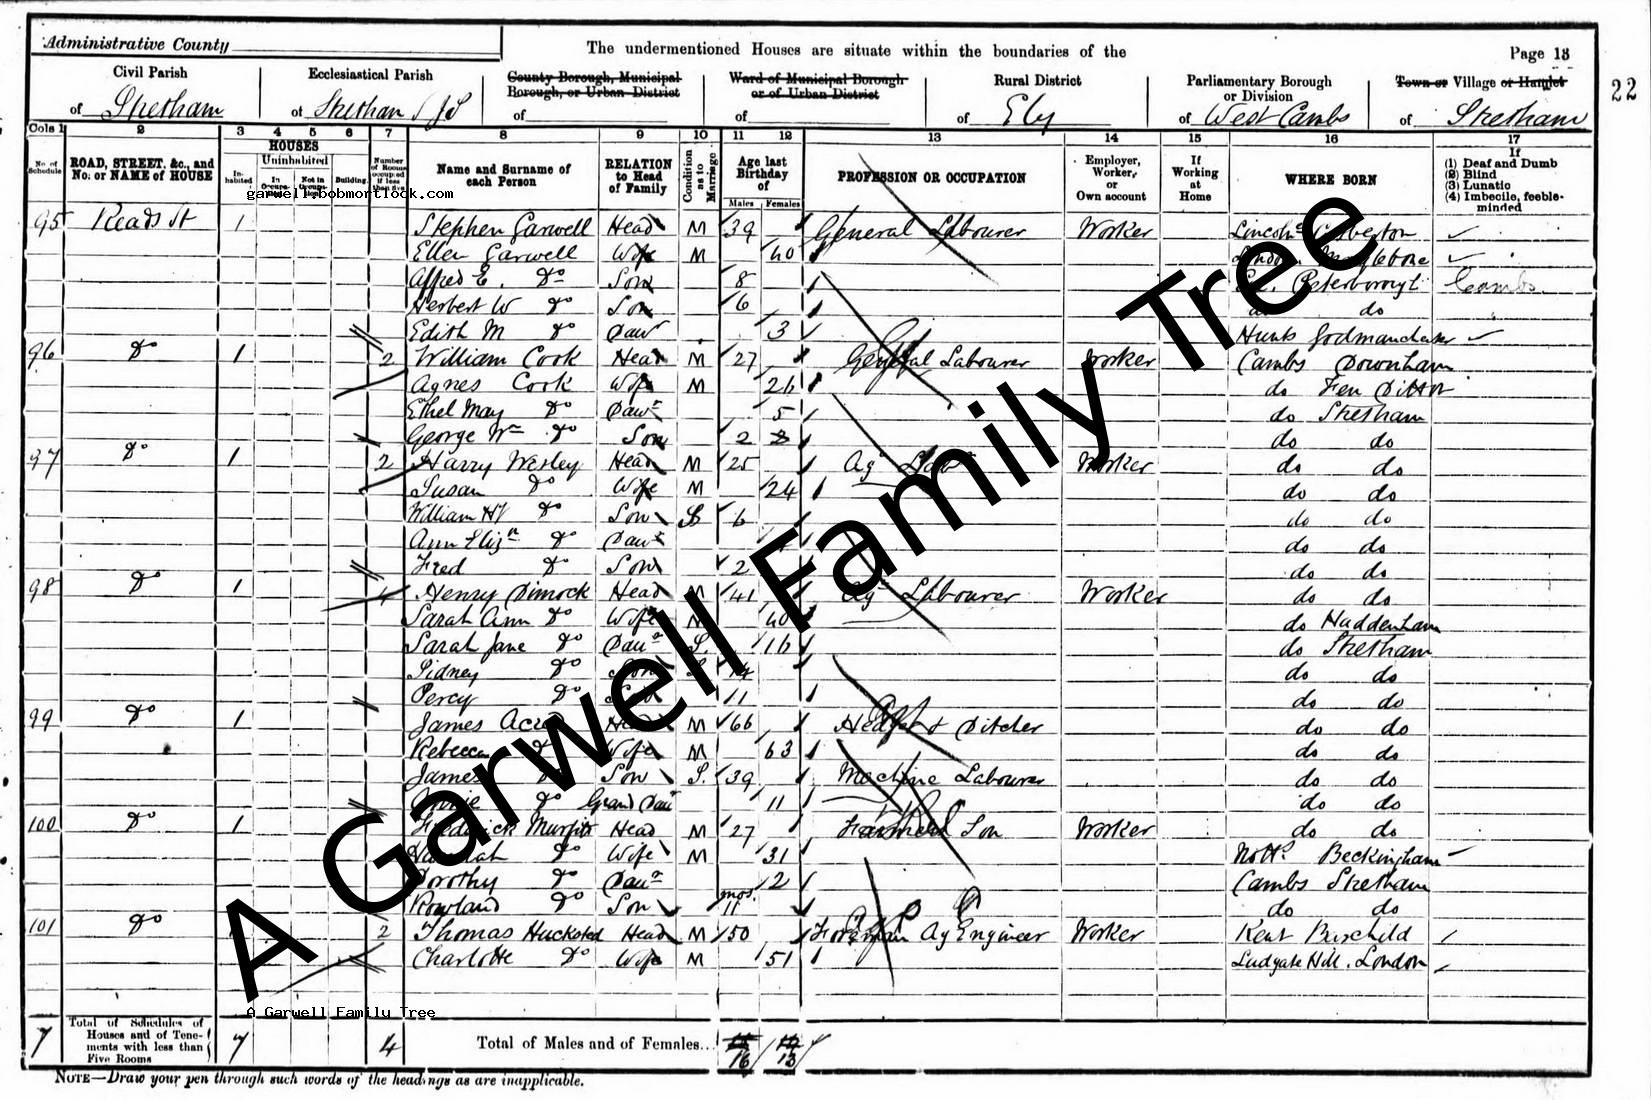 Administrative County
The undermentioned Houses are situate within the boundaries of the
Page 13
22
Civil Parish of Stretham
Ecclesiastical Parish of Stretham
County Borough, Municipal Borough, or Urban District of
Ward of Municipal Borough or of Urban District of
Rural District of Ely
Parliamentary Borough or Division of West Cambs
Town or Village or Hamlet of Stretham
Cols 1 2 3 4 5 6 7 8 9 10 11 12 13 14 15 16 17
No. of Schedule
ROAD, STREET, &c., and No. or NAME of HOUSE
HOUSES
Inhabited
Uninhabited
In Occupation
Not in Occupation
Building
Number of Rooms occupied if less than five
Name and Surname of each Person
RELATION to Head of Family
Condition as to Marriage
Age last Birthday of
Males Females
PROFESSION OR OCCUPATION
Employer, Worker, or Own account
If Working at Home
WHERE BORN
If
(1) Deaf and Dumb
(2) Blind
(3) Lunatic
(4) Imbecile, feeble-minded
garwell.bobmortlock.com
95 Reads St 1 Stephen Garwell Head M 39 General Labourer Worker
Ellen Garwell Wife M 40 London Marylebone
Alfred E. Do Son 8 Peterboro' Cambs
Herbert W Do Son 6 do do
Edith M Do Daur 3 Hunts Godmanchester
96 Do 1 2 William Cook Head M 27 General Labourer Worker Cambs Downham
Agnes Cook Wife M 26 do Fen Ditton
Ethel May Do Daur 5 do Stretham
George Wm Do Son 2 do do
97 Do 1 2 Harry Wesley Head M 25 Ag Labr Worker do do
Susan Do Wife M 24 do do
William Hy Do Son S 6 do do
Ann Elizh Do Daur do do
Fred Do Son 2 do do
98 Do 1 4 Henry Dimock Head M 41 Ag Labourer Worker do do
Sarah Ann Do Wife M 40 do Haddenham
Sarah Jane Do Daur S. 16 do Stretham
Sidney Do Son S. 14 do do
Percy Do Son 11 do do
99 Do 1 James Acred Head M 66 Hedger & Ditcher do do
Rebecca Do Wife M 63 do do
James Do Son S. 39 Machine Labourer do do
Annie Do Grand Daur 11 do do
100 Do 1 Frederick Murfitt Head M 27 Farmers Son Worker do do
Hannah Do Wife M 31 Notts Beckingham
Dorothy Do Daur 2 Cambs Stretham
Rowland Do Son 11 mos. do do
101 Do 2 Thomas Hucksted Head M 50 Foreman Ag Engineer Worker Kent
Charlotte Do Wife M 51 Ludgate Hill. London
A Garwell Family Tree
A Garwell Family Tree
7 Total of Schedules of Houses and of Tenements with less than Five Rooms 7 4 Total of Males and of Females... 16 13
NOTE—Draw your pen through such words of the headings as are inapplicable.